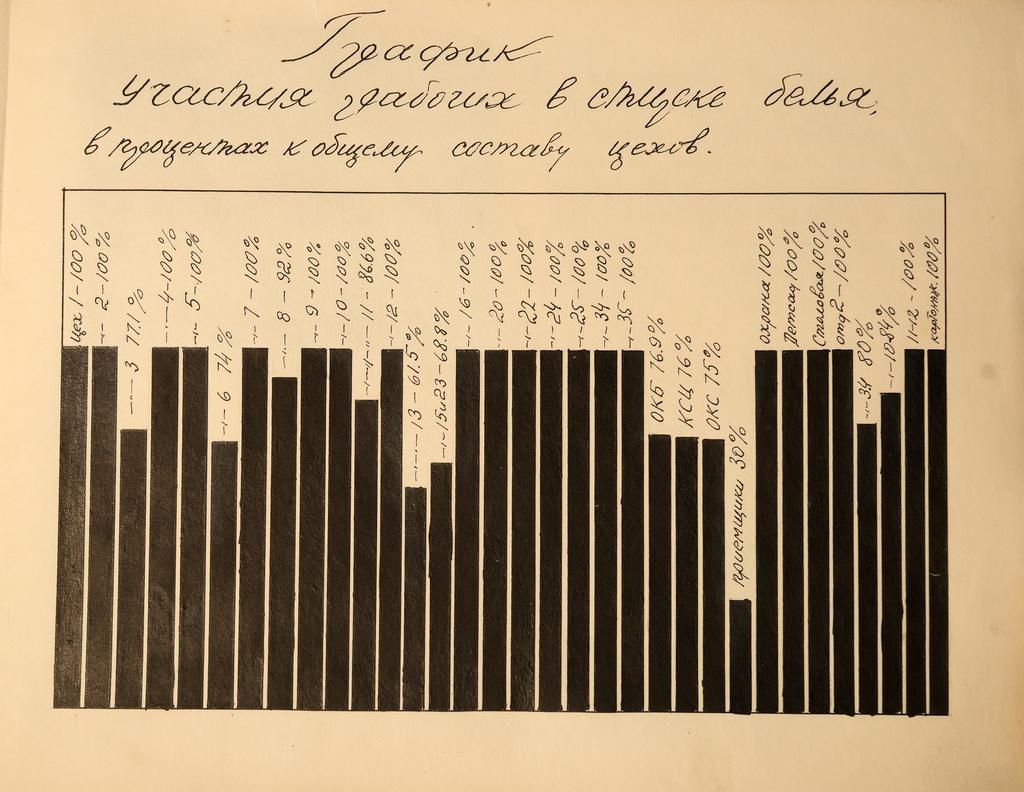 График
участия рабочих в стирке белья,
в процентах к общему составу цехов.
цех 1 - 100%
-"- 2 - 100%
-"- 3 77.1%
-"- 4 - 100%
-"- 5 - 100%
-"- 6 74%
-"- 7 - 100%
-"- 8 - 92%
-"- 9 - 100%
-"- 10 - 100%
-"- 11 - 86.6%
-"- 12 - 100%
-"- 13 - 61.5%
-"- 15 и 23 - 68.8%
-"- 16 - 100%
-"- 20 - 100%
-"- 22 - 100%
-"- 24 - 100%
-"- 25 - 100%
-"- 34 - 100%
-"- 35 - 100%
ОКБ 76.9%
КСЦ 76%
ОКС 75%
приемщики 30%
Охрана 100%
Детсад 100%
Столовая 100%
отд 2 - 100%
-"- 34 80%
-"- 10 84%
11-12 - 100%
100%